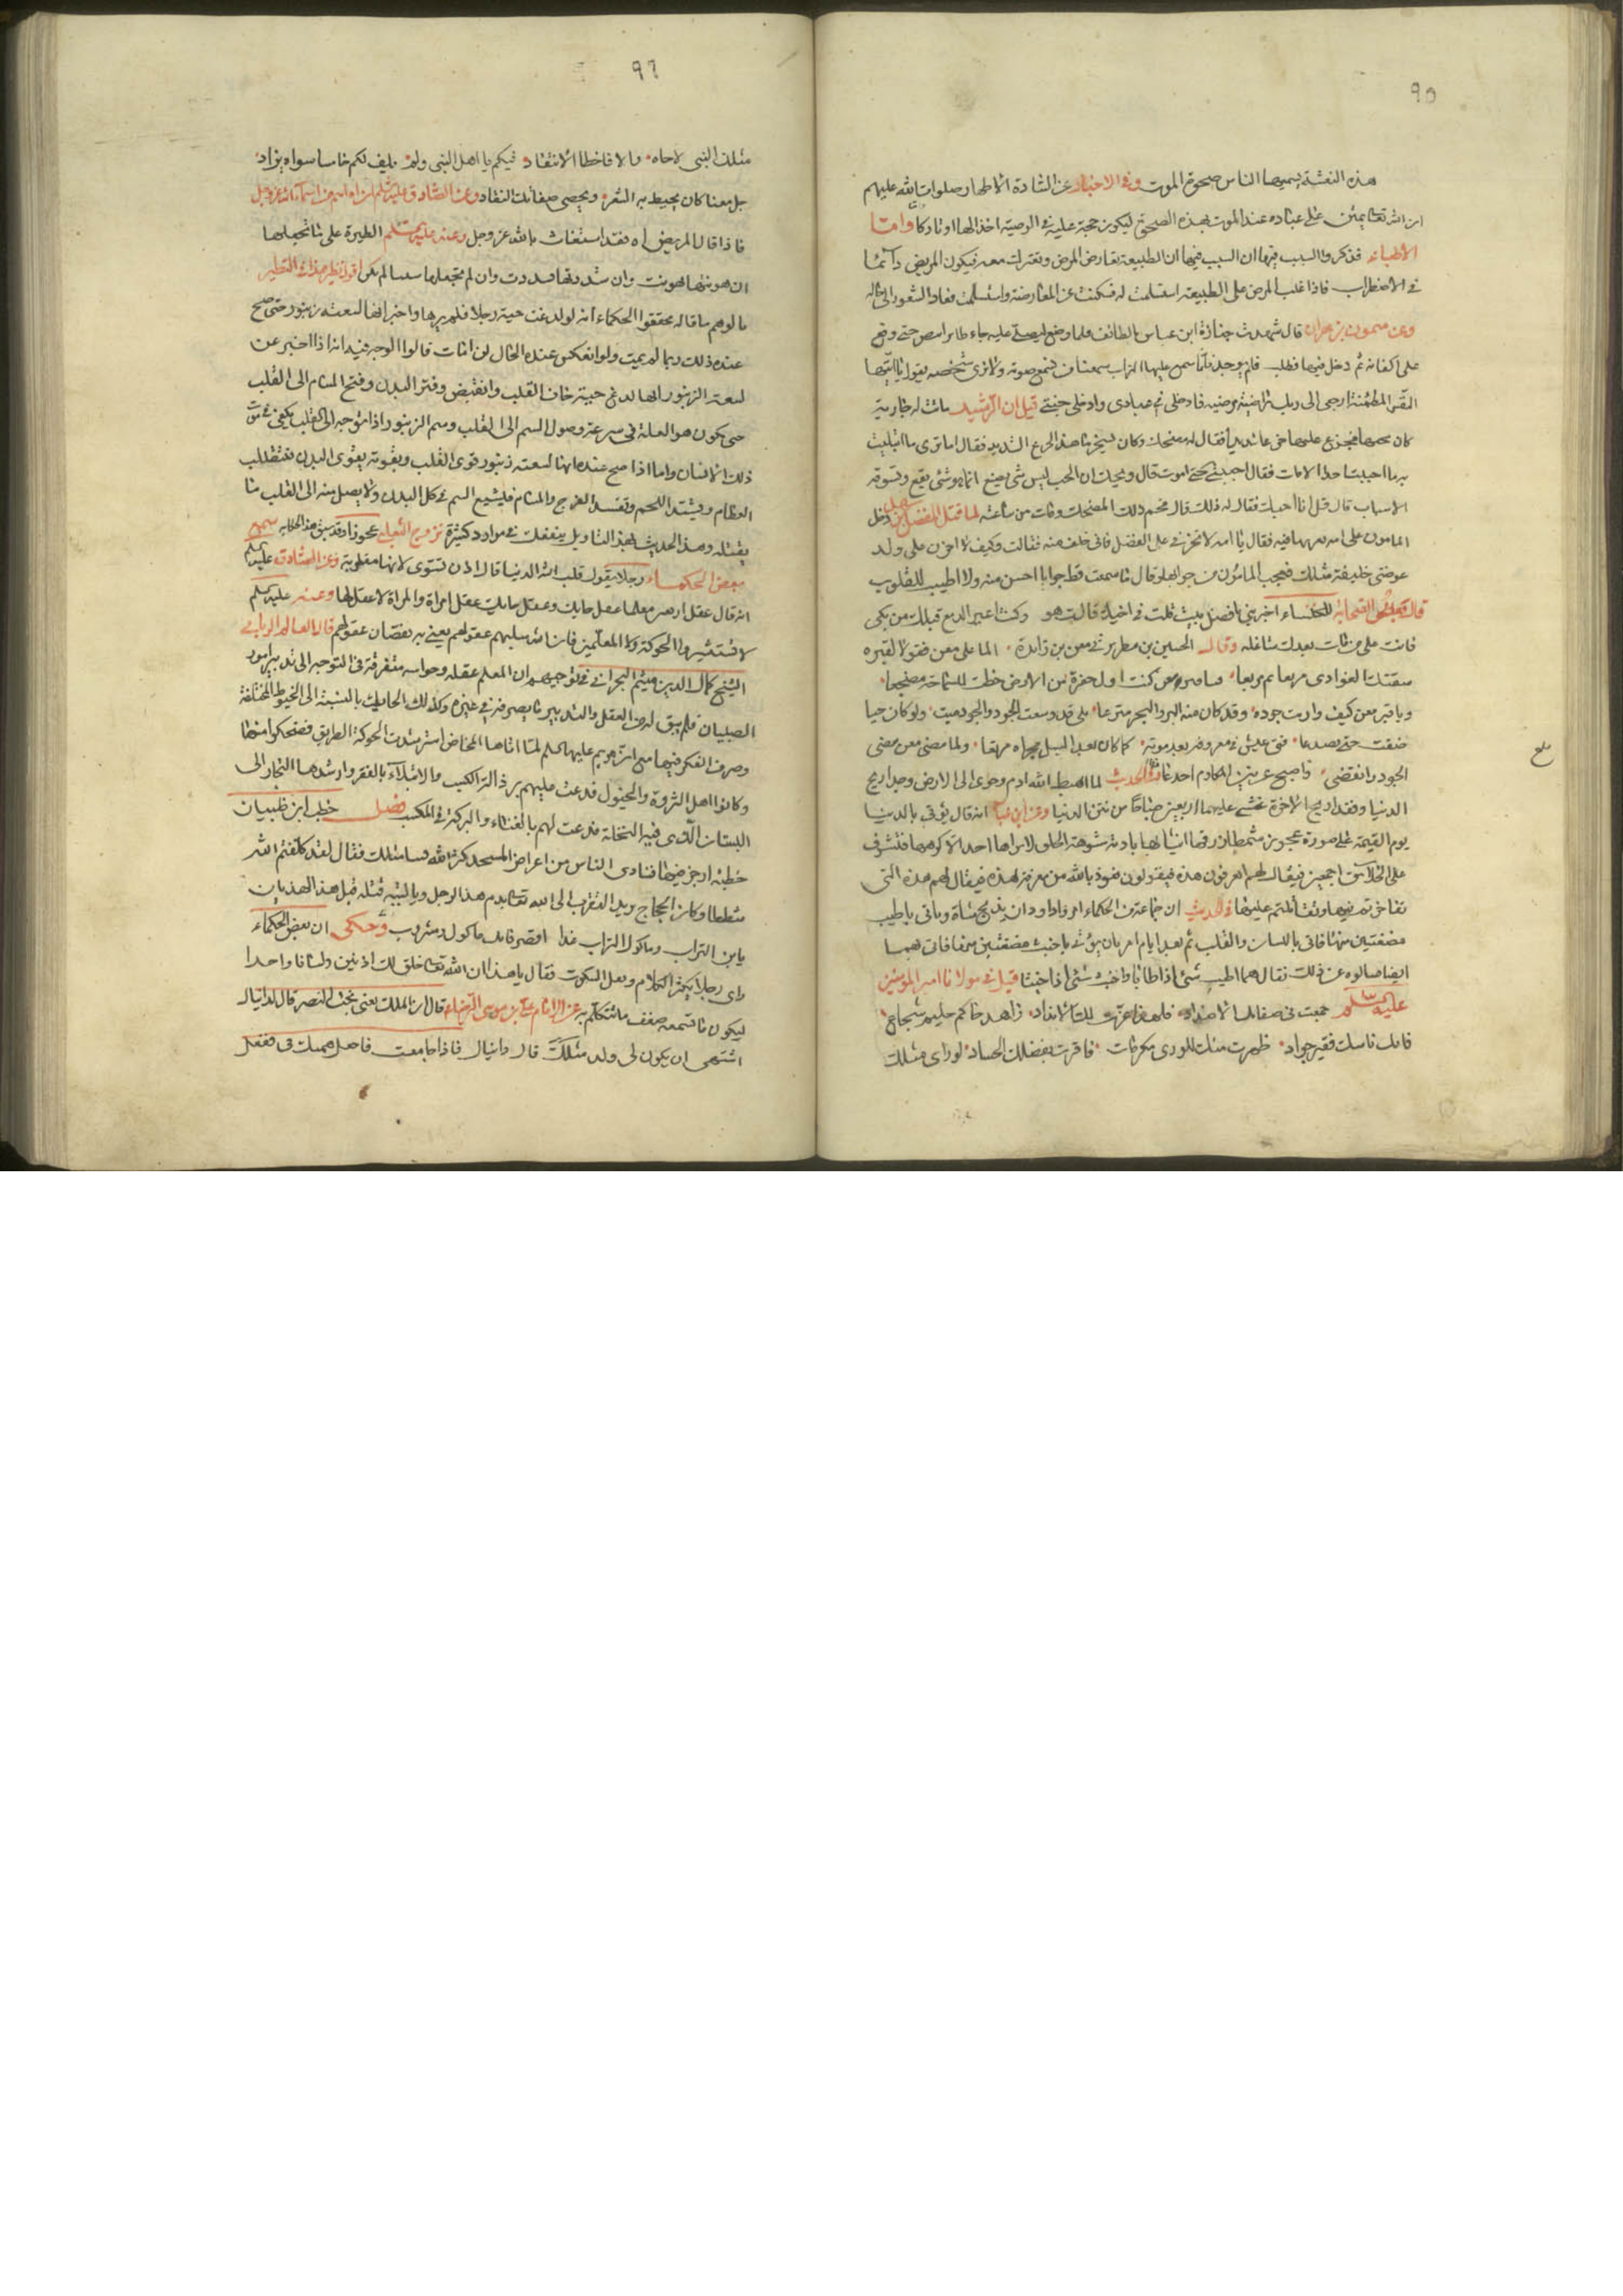 ٩٥
هذه النعشة يسميها الناس صحوة الموت وفي الاخبار عن السادة الاطهار صلوات الله عليهم
ان الله تعالى يمنن على عباده عند الموت بهذه الصحوة ليكون حجة عليه في الوصية اخذ لها او تاركا واما
الاطباء فذكروا السبب فيها ان السبب فيها ان الطبيعة تعارض المرض وتعترك معه فيكون المريض دائما
في الاضطراب فاذا غلب المرض على الطبيعة استسلمت له فسكنت عن المعارضة واستسلمت فعاد الشعور الى حاله
وعن ميمون بن مهران قال شهدت جنازة ابن عباس بالطائف فلما وضع ليصلى عليه جاء طائر ابيض حتى وقع
على اكفانه ثم دخل فيها فطلب فلم يوجد فلما سوى عليها التراب سمعنا من نسمع صوته ولا نرى شخصه يقول يا ايتها
النفس المطمئنة ارجعي الى ربك راضية مرضية فادخلي في عبادي وادخلي جنتي قيل ان الرشيد ماتت له جارية
كان يحبها فجزع عليها جزعا شديدا فقال له مضحك وكان يسخر ما هذا الجزع الشديد فقال اما ترى ما ابتليت
به ما احببت احدا الا مات فقال احببني حتى اموت قال ويحك ان الحب ليس شئ يصنع انما هو شئ يقع وتسوقه
الاسباب قال قل انا احبك فقال له ذلك قال فحم ذلك المضحك ومات من ساعته لما قتل الفضل بن سهل دخل
المامون على امه يعزيها فيه فقال يا امه لا تحزني على الفضل فاني خلف منه فقالت وكيف لا احزن على ولد
عوضني خليفة مثلك فعجب المامون من جوابها وقال ما سمعت قط جوابا احسن منه ولا اطيب للقلوب
قال بعض الصحابة للخنساء اخبريني بافضل بيت قلت في اخيك قالت هو وكنت اعير الدمع قبلك من بكى
فانت على من مات بعدك شاغله وقال الحسين بن مطير يرثي معن بن زائدة الما على معن فقولا لقبره
سقتك الغوادي مربعا ثم مربعا فيا قبر معن كنت اول حفرة من الارض خطت للسماحة مضجعا
ويا قبر معن كيف واريت جوده وقد كان منه البر والبحر مترعا بلى قد وسعت الجود والجود ميت ولو كان حيا
ضقت حتى تصدعا فتى عيش في معروفه بعد موته كما كان بعد السيل مجراه مرتعا ولما مضى معن مضى
الجود وانقضى واصبح عرنين المكارم اجدعا وفي الحديث لما اهبط الله ادم وحوى الى الارض وجدا ريح
الدنيا وفقدا ريح الاخرة غشي عليهما اربعين صباحا من نتن الدنيا وعن ابن عباس انه قال يؤتى بالدنيا
يوم القيمة على صورة عجوز شمطاء زرقاء انيابها بادية مشوهة الخلق لا يراها احد الا كرهها فتشرف
على الخلائق اجمعين فيقال لهم اتعرفون هذه فيقولون نعوذ بالله من معرفة هذه فيقال لهم هذه التي
تفاخرتم بها وتقاتلتم عليها في الحديث ان جماعة من الحكماء امروا داود ان يذبح شاة وياتي باطيب
مضغتين منها فاتى باللسان والقلب ثم بعد ايام امر بان يؤتى باخبث مضغتين منها فاتى بهما
ايضا فسالوه عن ذلك فقال هما اطيب شئ اذا طابا واخبث شئ اذا خبثا قيل في مولانا امير المؤمنين
عليه السلام جمعت في صفاتك الاضداد فلهذا عزت لك الانداد زاهد حاكم حليم شجاع
فاتك ناسك فقير جواد ظهرت منك للورى مكرمات فاقرت بفضلك الحساد لو راى مثلك
٩٦
مثلك النبي لاخاه والا فاخطا الانتقاد فيكم يا اهل النبي ولم يلف لكم خامسا سواه يزاد
جل معناك ان يحيط به الشعر ويحصي صفاتك النقاد وعن الصادق عليه السلام ان اه اسم من اسماء الله عز وجل
فاذا قال المريض اه فقد استغاث بالله عز وجل وعنه عليه السلام الطيرة على ما تجعلها
ان هونتها تهونت وان شددتها تشددت وان لم تجعلها شيئا لم تكن اقول نظير هذا في التطير
ما لوهم ما قاله محققوا الحكماء انه لو لدغت حية رجلا فلم يرها واخبر انها لسعة زنبور حتى صح
عنده ذلك ربما لم يمت ولو انعكس عنده الحال لربما مات قالوا الوجه فيه انه اذا اخبر عن
لسعة الزنبور انها لدغ حية خاف القلب وانقبض وفتر البدن وفتح المسام الى القلب
حتى يكون هو العلة في سرعة وصول السم الى القلب وسم الزنبور اذا توجه الى القلب يكفي في موت
ذلك الانسان واما اذا صح عنده انها لسعة زنبور قوى القلب وبقوته يقوى البدن فتتطلب
العظام ويشتد اللحم وتفسد الفرج والمسام فيشيع السم في كل البدن ولا يصل منه الى القلب ما
يقتله وهذا الحديث بهذا التاويل ينفعك في موارد كثيرة تزوج الثعبان عجوزا وقد سبق هذا الحكاية سمع
بعض الحكماء رجلا يقول قلب الله الدنيا قال اذن تستوى لانها مقلوبة وعن الصادق عليه السلام
انه قال عقل اربعين معلما عقل حايك وعقل حايك عقل امراة والمراة لا عقل لها وعنه عليه السلام
لا تستشيروا الحوكة ولا المعلمين فان الله سلبهم عقولهم يعني به نقصان عقولهم قال العالم الرباني
الشيخ كمال الدين ميثم البحراني في توجيهه ان المعلم عقله وحواسه متفرقة في التوجه الى تدبير امور
الصبيان فلم يبق له من العقل والتدبير ما يصرفه في غيره وكذلك الحايك بالنسبة الى الخيوط المختلفة
وصرف الفكر فيها مع ان مريم عليها السلام لما اتاها المخاض استرشدت الحوكة الطريق فضحكوا منها
وكانوا اهل الثروة والخيول فدعت عليهم برذالة الكسب والابتلاء بالفقر وارشدها التجار الى
البستان الذي فيه النخلة فدعت لهم بالغناء والبركة في المكسب فصل خطب ابن ظبيان
خطبة اوجز فيها فنادى الناس من اعراض المسجد كثر الله فينا مثلك فقال لقد كلفتم الله
شططا وكان الحجاج يريد التقرب الى الله تعالى بدم هذا الرجل
يابن التراب وماكول التراب غدا اقصر فانك ماكول ومشروب وحكى ان بعض الحكماء
راى رجلا يكثر الكلام ويقل السكوت فقال يا هذا ان الله تعالى خلق لك اذنين ولسانا واحدا
ليكون ما تسمعه ضعف ما تتكلم به عن الامام علي بن موسى الرضا قال ان الملك يعني بخت النصر قال لدانيال
اشتهى ان يكون لي ولد مثلك قال دانيال فاذا جامعت فاجعل همتك في ففعل